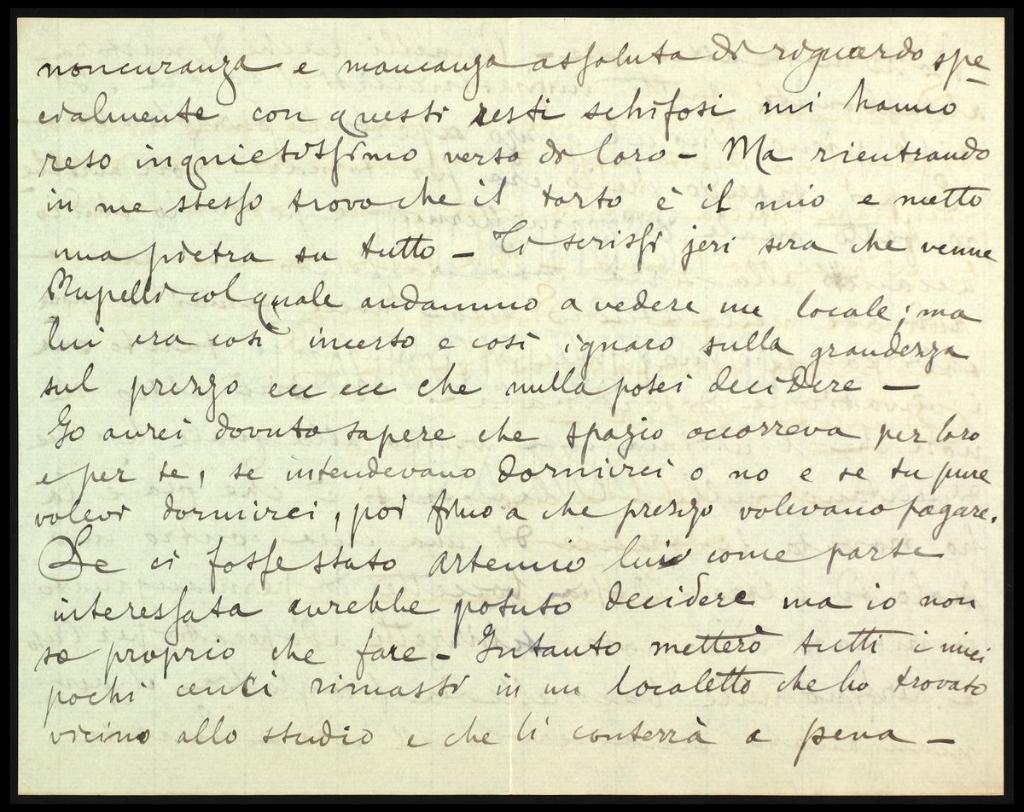 noncuranza e mancanza assoluta di riguardo spe-
cialmente con questi resti schifosi mi hanno
reso inquietissimo verso di loro - Ma rientrando
in me stesso trovo che il torto è il mio e metto
una pietra su tutto - Ti scrissi jeri sera che venne
Rupelli col quale andammo a vedere un locale; ma
lui era così incerto e così ignaro sulla grandezza
sul prezzo ecc ecc che nulla potei decidere -
Io avrei dovuto sapere che spazio occorreva per loro
e per te, se intendevano dormirci o no e se tu pure
volevi dormirci, poi fino a che prezzo volevano pagare.
Se ci fosse stato Artemio lui come parte
interessata avrebbe potuto decidere ma io non
so proprio che fare - Intanto metterò tutti i miei
pochi cenci rimasti in un localetto che ho trovato
vicino allo studio e che li conterrà a pena -